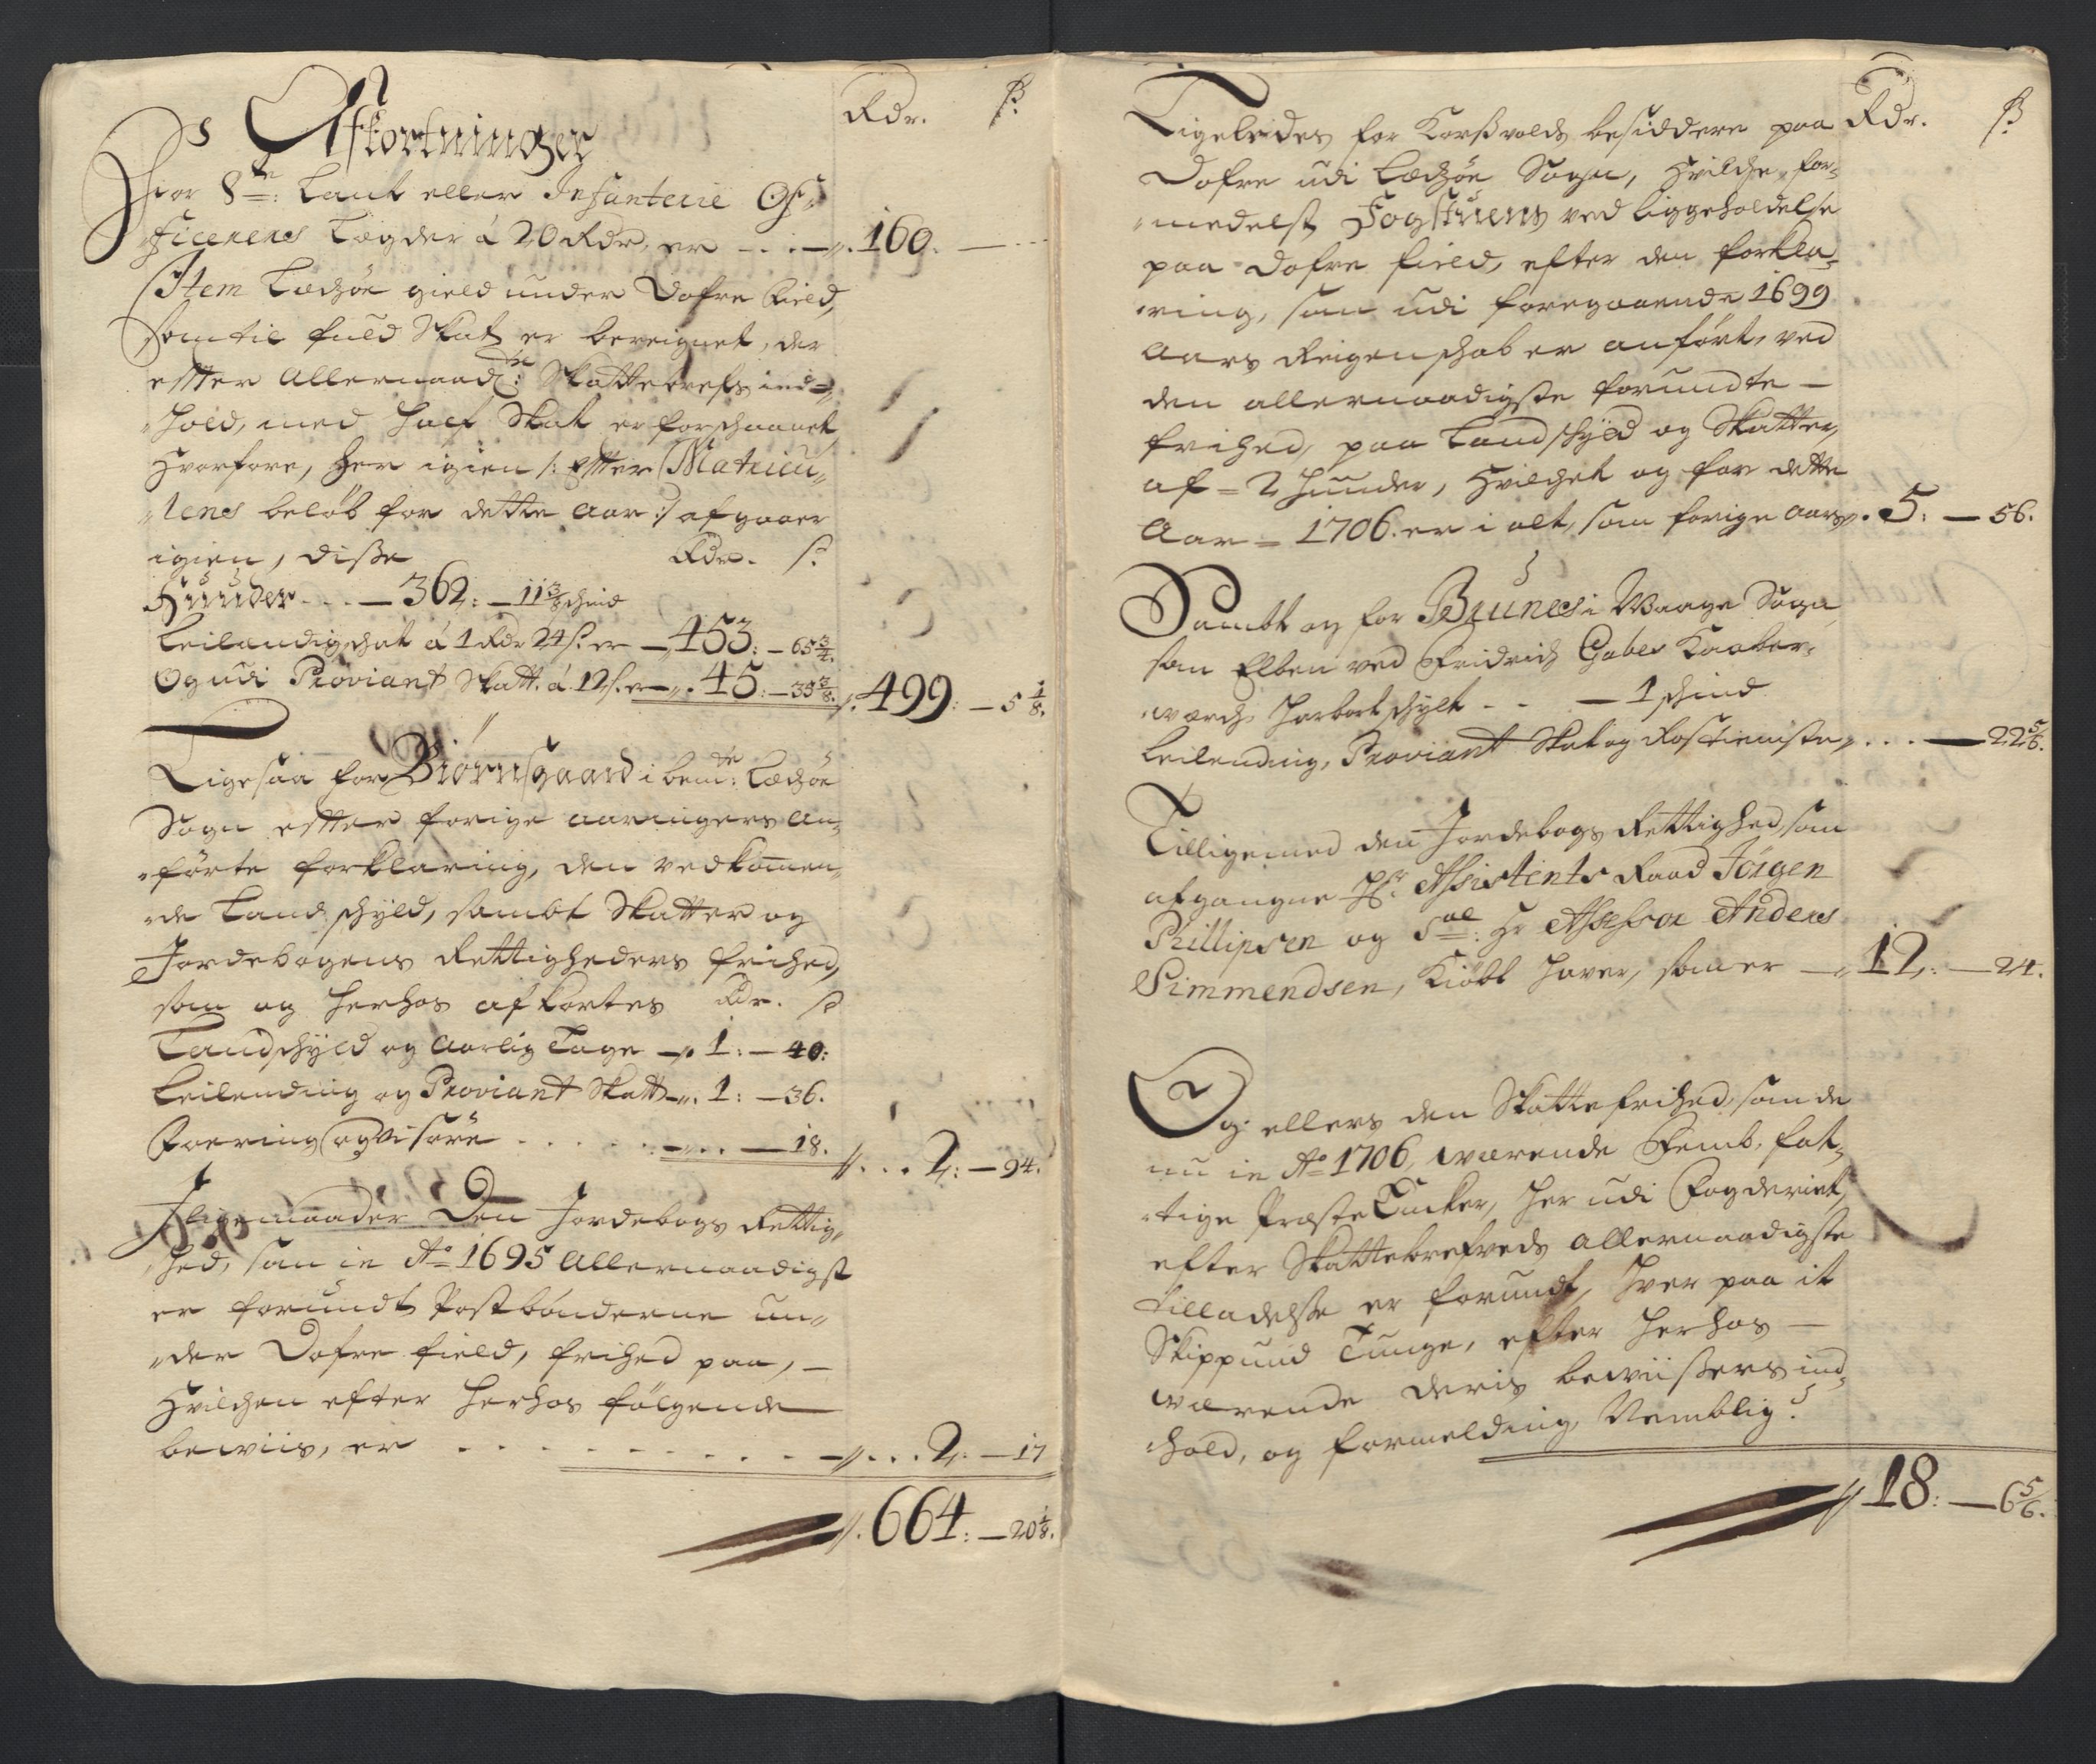 Afkortninger
Rdr. ß.
Hvor 8te: Laut eller Infanterie Of„
„ficerenes Legder á 20 Rdr. er - . . - „ . 160. —
Item Leßøe gield under Dofre Field,
som til fuld Skat er bereignet, der
efter Allernaadste: Skattebrefs ind„
„hold, med half Skat er forschaanet,
Hvorfore, her igien /: Efter Matricu„
„lens beløb for dette Aar :/ afgaaer
igien, disse Rdr. ß.
Huuder - . . — 362: — 11 3/8 schind
Leilendingschat á 1 Rdr 24 ß. er — „ 453: — 65 3/4.
Og udi Proviant Skatt. á 12 ß. er — „ . 45: — 35 3/8. „ . 499: — 5 1/8.
Ligesaa for Biørnsgaard i bemte: Leßøe
Sogn efter forige aaringers an„
„førte forklaring, den vedkommen„
„de Landschyld, sambt Skatter og
Jordebogens Rettigheders frihed,
som og herhos afkortes Rdr. ß
Landschyld og Aarlig Tage — „ 1: — 40:
Leilending og Proviant Skatt — „ . 1: — 36.
Foering og Visøre . . . . . : — „ . . — 18. „ . . . 2: — 94.
I ligemaader Den Jordebogs Rettig„
„hed, som in Ao 1695 Allernaadigst
er forundt Postbønderne un„
„der Dofre field, frihed paa, —
Hvilchen efter herhos følgende
beviis, er . . . . . . . . . — „ . . . 2: — 17
„ . 664: — 20 1/8.
Rdr. ß
Ligeledes for Korßvolds besiddere paa
Dofre udi Leßøe Sogn, Hvilche, for„
„medelst Fogstuens ved liggeholdelse
paa Dofre field, efter den forkla„
„ring, som udi foregaaende 1699
Aars Reigenschab er anført, ved
den allernaadigste forundte —
frihed, paa Landschyld og Skatter,
af = 2 Huuder, Hvilchet og for dette
Aar = 1706. er i alt, som forige Aars „ . 5: — 56.
Sambt og for Brunes i Waage Sogn
som Elben ved Fridrich Gabes Kaaber„
„værch harbortschylt - - — 1 schind
Leilending, Proviant Skat og Rostieniste „ . . . — 22 5/6.
Tilligemed den Jordebogs Rettighed, som
afgangne Hr: Assistents Raad Jörgen
Phillipsen og Sal: Hr Assessor Anders
Simmendsen, Kiøbt haver, som er — „ 12: — 24.
Og ellers den Skattefrihed, som de
nu in Ao 1706, værende Femb, fat„
„tige Præste Encker, her udi Fogderiet,
efter Skattebrefveds allernaadigste
tilladelse er forundt, hver paa it
Skippund Tunge, efter herhos —
værende deris bewiißers ind„
„hold, og formelding, Nemblig:
„ 18: — 6 5/6.